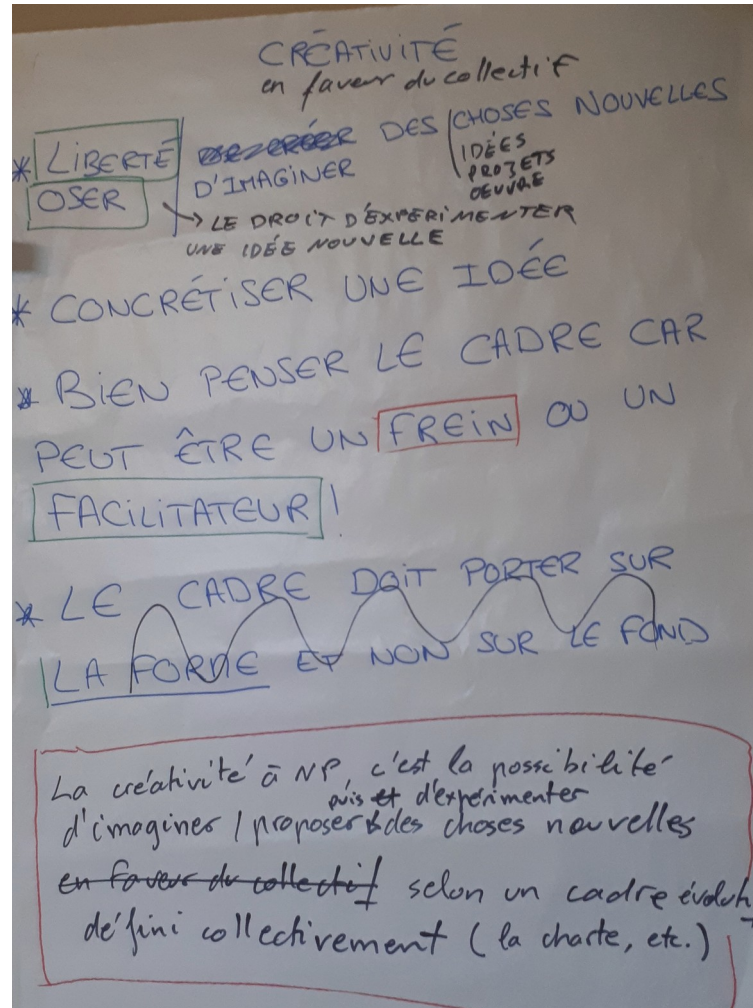 CRÉATIVITÉ
en faveur du collectif
* LIBERTÉ DE CRÉER DES CHOSES NOUVELLES
D'IMAGINER
IDÉES
PROJETS
OEUVRE
OSER
→ LE DROIT D'EXPÉRIMENTER
UNE IDÉE NOUVELLE
* CONCRÉTISER UNE IDÉE
* BIEN PENSER LE CADRE CAR
PEUT ÊTRE UN FREIN OU UN
FACILITATEUR !
* LE CADRE DOIT PORTER SUR
LA FORME ET NON SUR LE FOND
La créativité à NP, c'est la possibilité
puis et d'expérimenter
d'imaginer / proposer des choses nouvelles
en faveur du collectif selon un cadre évolutif
défini collectivement (la charte, etc.)